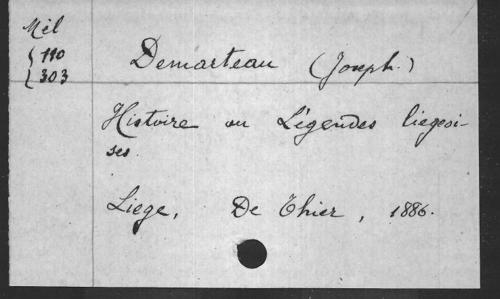 Mél
110
303
Demarteau (Joseph.)
Histoire ou Légendes liegeoi-
ses.
Liege, De Thier, 1886.